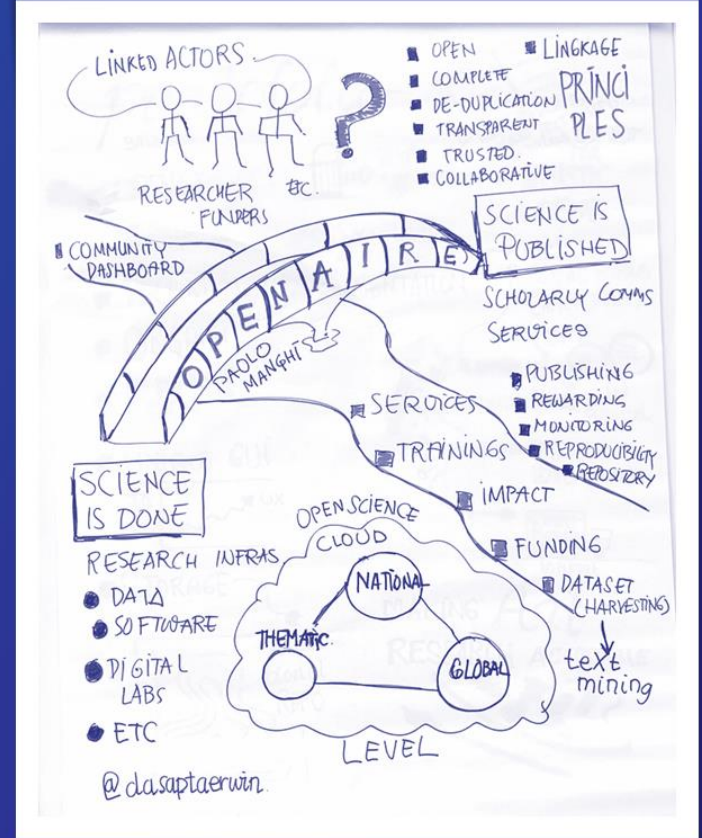 LINKED ACTORS
?
RESEARCHER
FUNDERS
ETC.
OPEN
COMPLETE
DE-DUPLICATION
TRANSPARENT
TRUSTED.
COLLABORATIVE
LINGKAGE
PRINCI
PLES
COMMUNITY
DASHBOARD
OPENAIRE
PAOLO
MANGHI
SCIENCE IS
PUBLISHED
SCHOLARLY COMMS
SERVICES
PUBLISHING
REWARDING
MONITORING
REPRODUCIBILITY
REPOSITORY
SERVICES
TRAININGS
IMPACT
FUNDING
DATASET
(HARVESTING)
text
mining
SCIENCE
IS DONE
RESEARCH INFRAS
DATA
SOFTWARE
DIGITAL
LABS
ETC
OPEN SCIENCE
CLOUD
NATIONAL
THEMATIC.
GLOBAL
LEVEL
@dasaptaerwin.